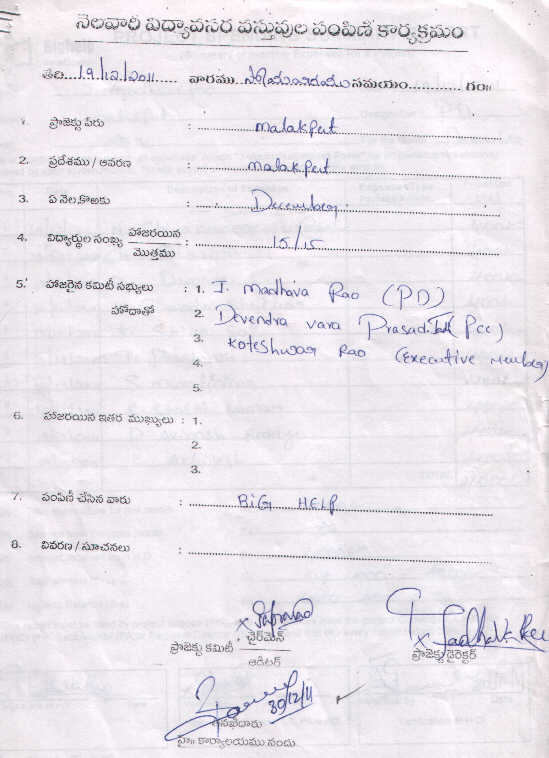 నెలవారీ విద్యావసర వస్తువుల పంపిణీ కార్యక్రమం
తేది...19/12/2011...... వారము సోమవారము సమయం............ గం॥
1. ప్రాజెక్టు పేరు : malakpet
2. ప్రదేశము / ఆవరణ : malakpet
3. ఏ నెల కొఱకు : December
4. విద్యార్థుల సంఖ్య హాజరయిన / మొత్తము : 15/15
5. హాజరైన కమిటీ సభ్యులు : 1. J. madhava Rao (PD)
హోదాతో 2. Devendra vara Prasad (Pcc)
3. Koteshwar Rao (Executive Member)
4.
5.
6. హాజరయిన ఇతర ముఖ్యులు : 1.
2.
3.
7. పంపిణీ చేసిన వారు : BiG HELP
8. వివరణ / సూచనలు :
x
ప్రాజెక్టు కమిటీ చైర్‌మెన్ / ఆడిటర్
x
ప్రాజెక్టు డైరెక్టర్
30/12/11
తనిఖీదారు
హై॥ కార్యాలయము నందు.